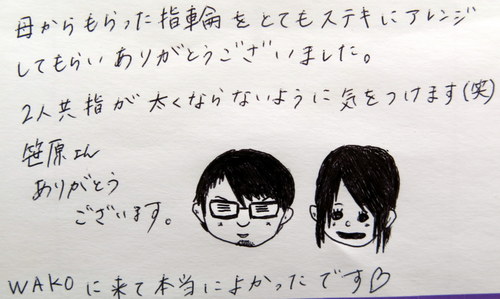 母からもらった指輪をとてもステキにアレンジ
してもらいありがとうございました。
2人共指が太くならないように気をつけます(笑)
笹原さん
ありがとう
ございます。
WAKOに来て本当によかったです♡